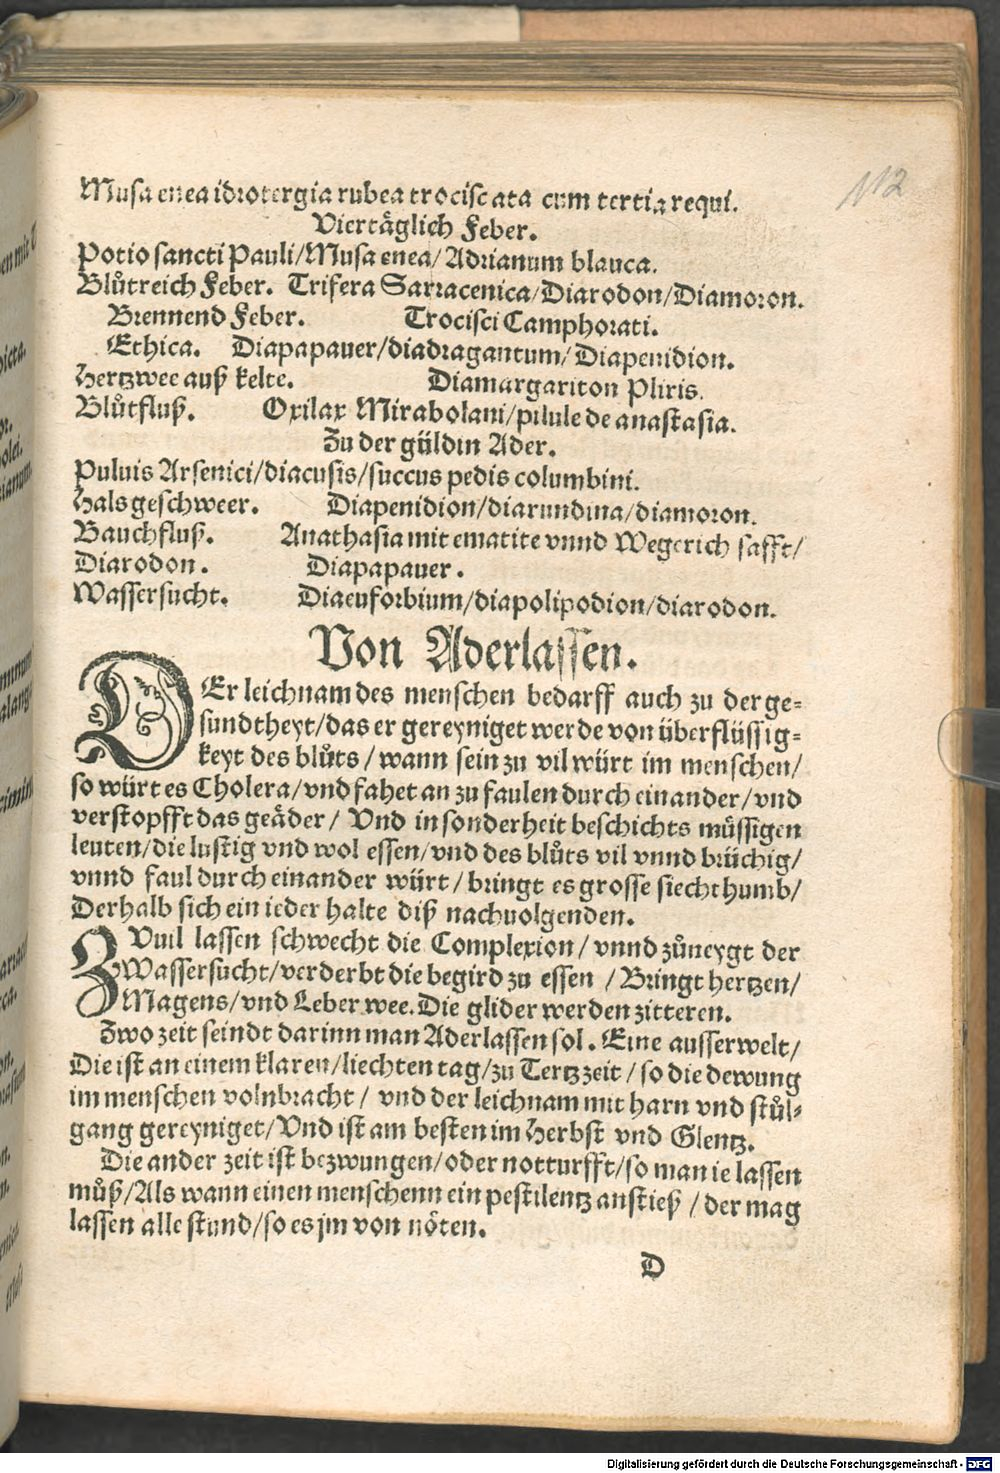 112
Musa enea idrotergia rubea trociscata cum tertia requi.
Viertäglich Feber.
Potio sancti Pauli/Musa enea/Adrianum blauca.
Blůtreich Feber. Trifera Sarracenica/Diarodon/Diamoron.
Brennend Feber. Trocisci Camphorati.
Ethica. Diapapauer/diadragantum/Diapenidion.
Hertzwee auß kelte. Diamargariton Pliris.
Blůtfluß. Oxilax Mirabolani/pilule de anastasia.
Zu der güldin Ader.
Puluis Arsenici/diacusis/succus pedis columbini.
Halsgeschweer. Diapenidion/diarundina/diamoron.
Bauchfluß. Anathasia mit ematite vnnd Wegerich safft/
Diarodon. Diapapauer.
Wassersucht. Diaeuforbium/diapolipodion/diarodon.
Von Aderlassen.
DEr leichnam des menschen bedarff auch zu der ge-
sundtheyt/das er gereyniget werde von überflüssig-
keyt des blůts/wann sein zu vil würt im menschen/
so würt es Cholera/vnd fahet an zu faulen durch einander/vnd
verstopfft das geäder/ Vnd in sonderheit beschichts müssigen
leuten/die lustig vnd wol essen/vnd des blůts vil vnnd brüchig/
vnnd faul durch einander würt/bringt es grosse siechthumb/
Derhalb sich ein ieder halte diß nachuolgenden.
ZVuil lassen schwecht die Complexion/vnnd zůneygt der
Wassersucht/verderbt die begird zu essen /Bringt hertzen/
Magens/vnd Leber wee. Die glider werden zitteren.
Zwo zeit seindt darinn man Aderlassen sol. Eine ausserwelt/
Die ist an einem klaren/liechten tag/zu Tertzzeit/so die dewung
im menschen volnbracht/ vnd der leichnam mit harn vnd stůl-
gang gereyniget/Vnd ist am besten im Herbst vnd Glentz.
Die ander zeit ist bezwungen/oder notturfft/so man ie lassen
můß/Als wann einen menschenn ein pestilentz anstieß/der mag
lassen alle stund/so es jm von nöten.
D
Digitalisierung gefördert durch die Deutsche Forschungsgemeinschaft - DFG